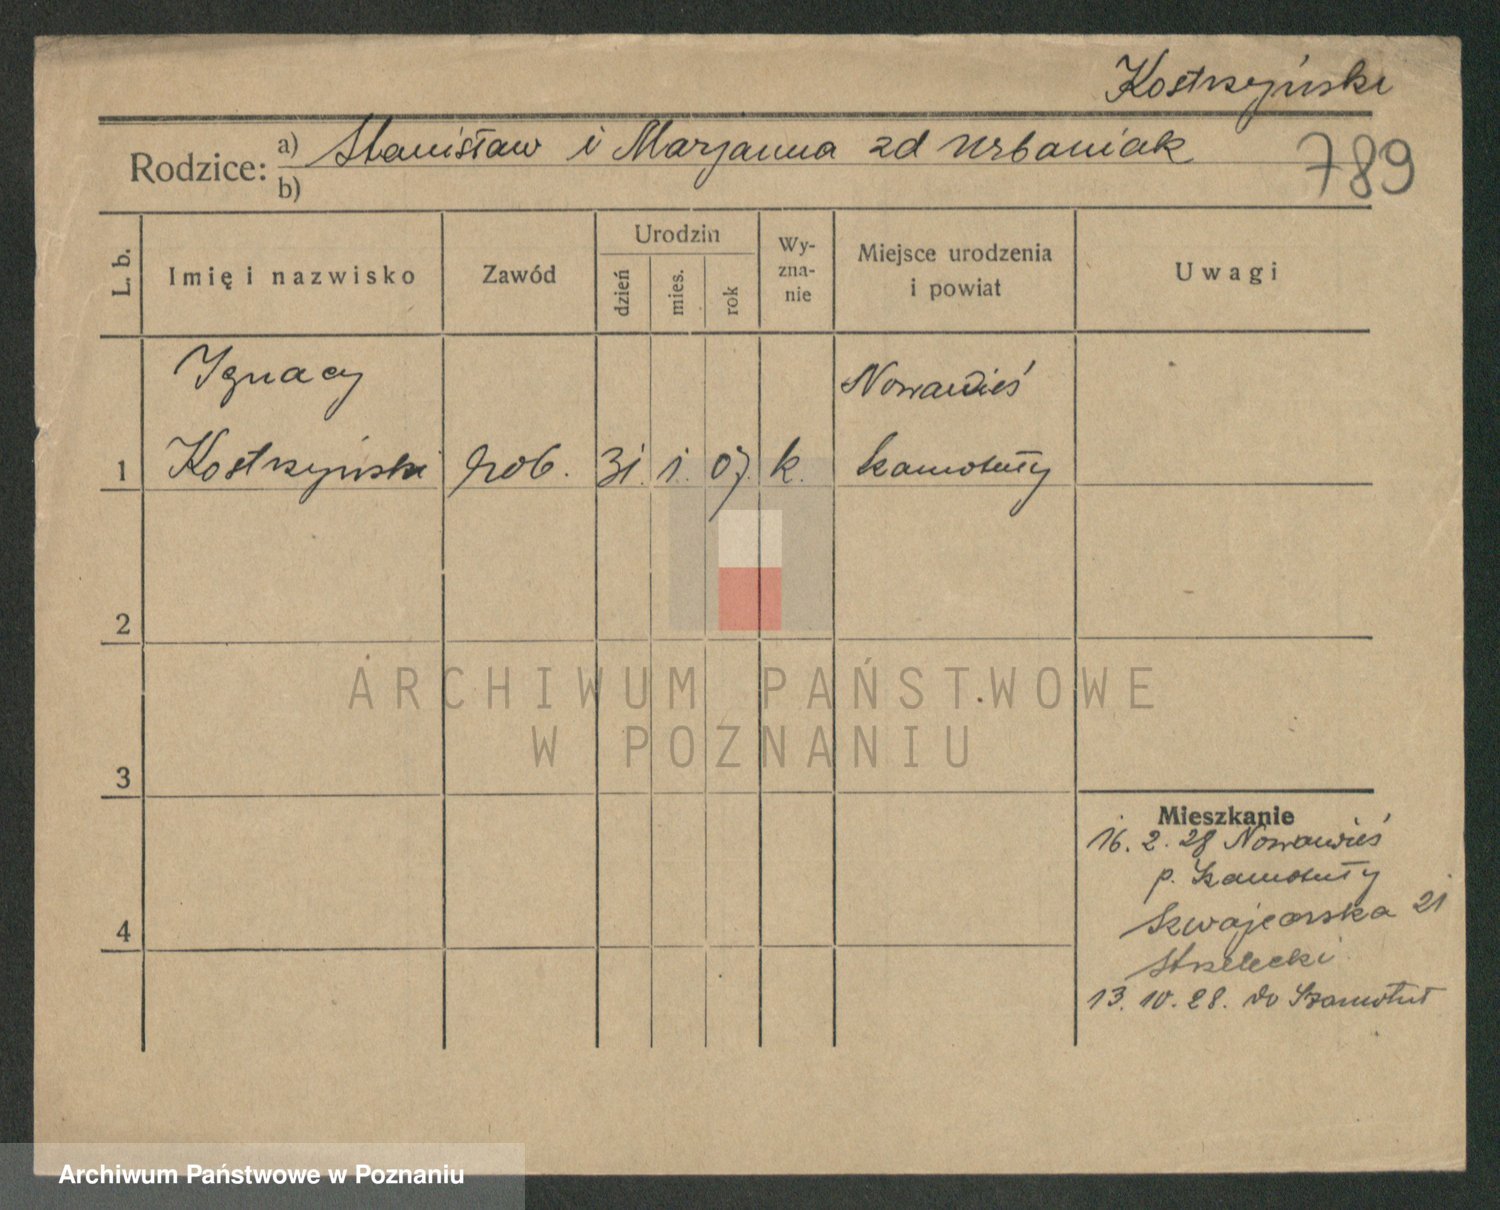 Kostrzyński
789
Rodzice: a) Stanisław i Marjanna zd Urbaniak
b)
L. b.
Imię i nazwisko
Zawód
Urodzin
dzień
mies.
rok
Wy-
zna-
nie
Miejsce urodzenia
i powiat
Uwagi
Ignacy
Nowawieś
1 Kostrzyński rob. 31. 1. 07. k. Szamotuły
2
ARCHIWUM PAŃSTWOWE
W POZNANIU
3
Mieszkanie
16. 2. 28 Nowawieś
p. Szamotuły
Szwajcarska 21
Strzelecki
4
13. 10. 28. do Szamotuł
Archiwum Państwowe w Poznaniu